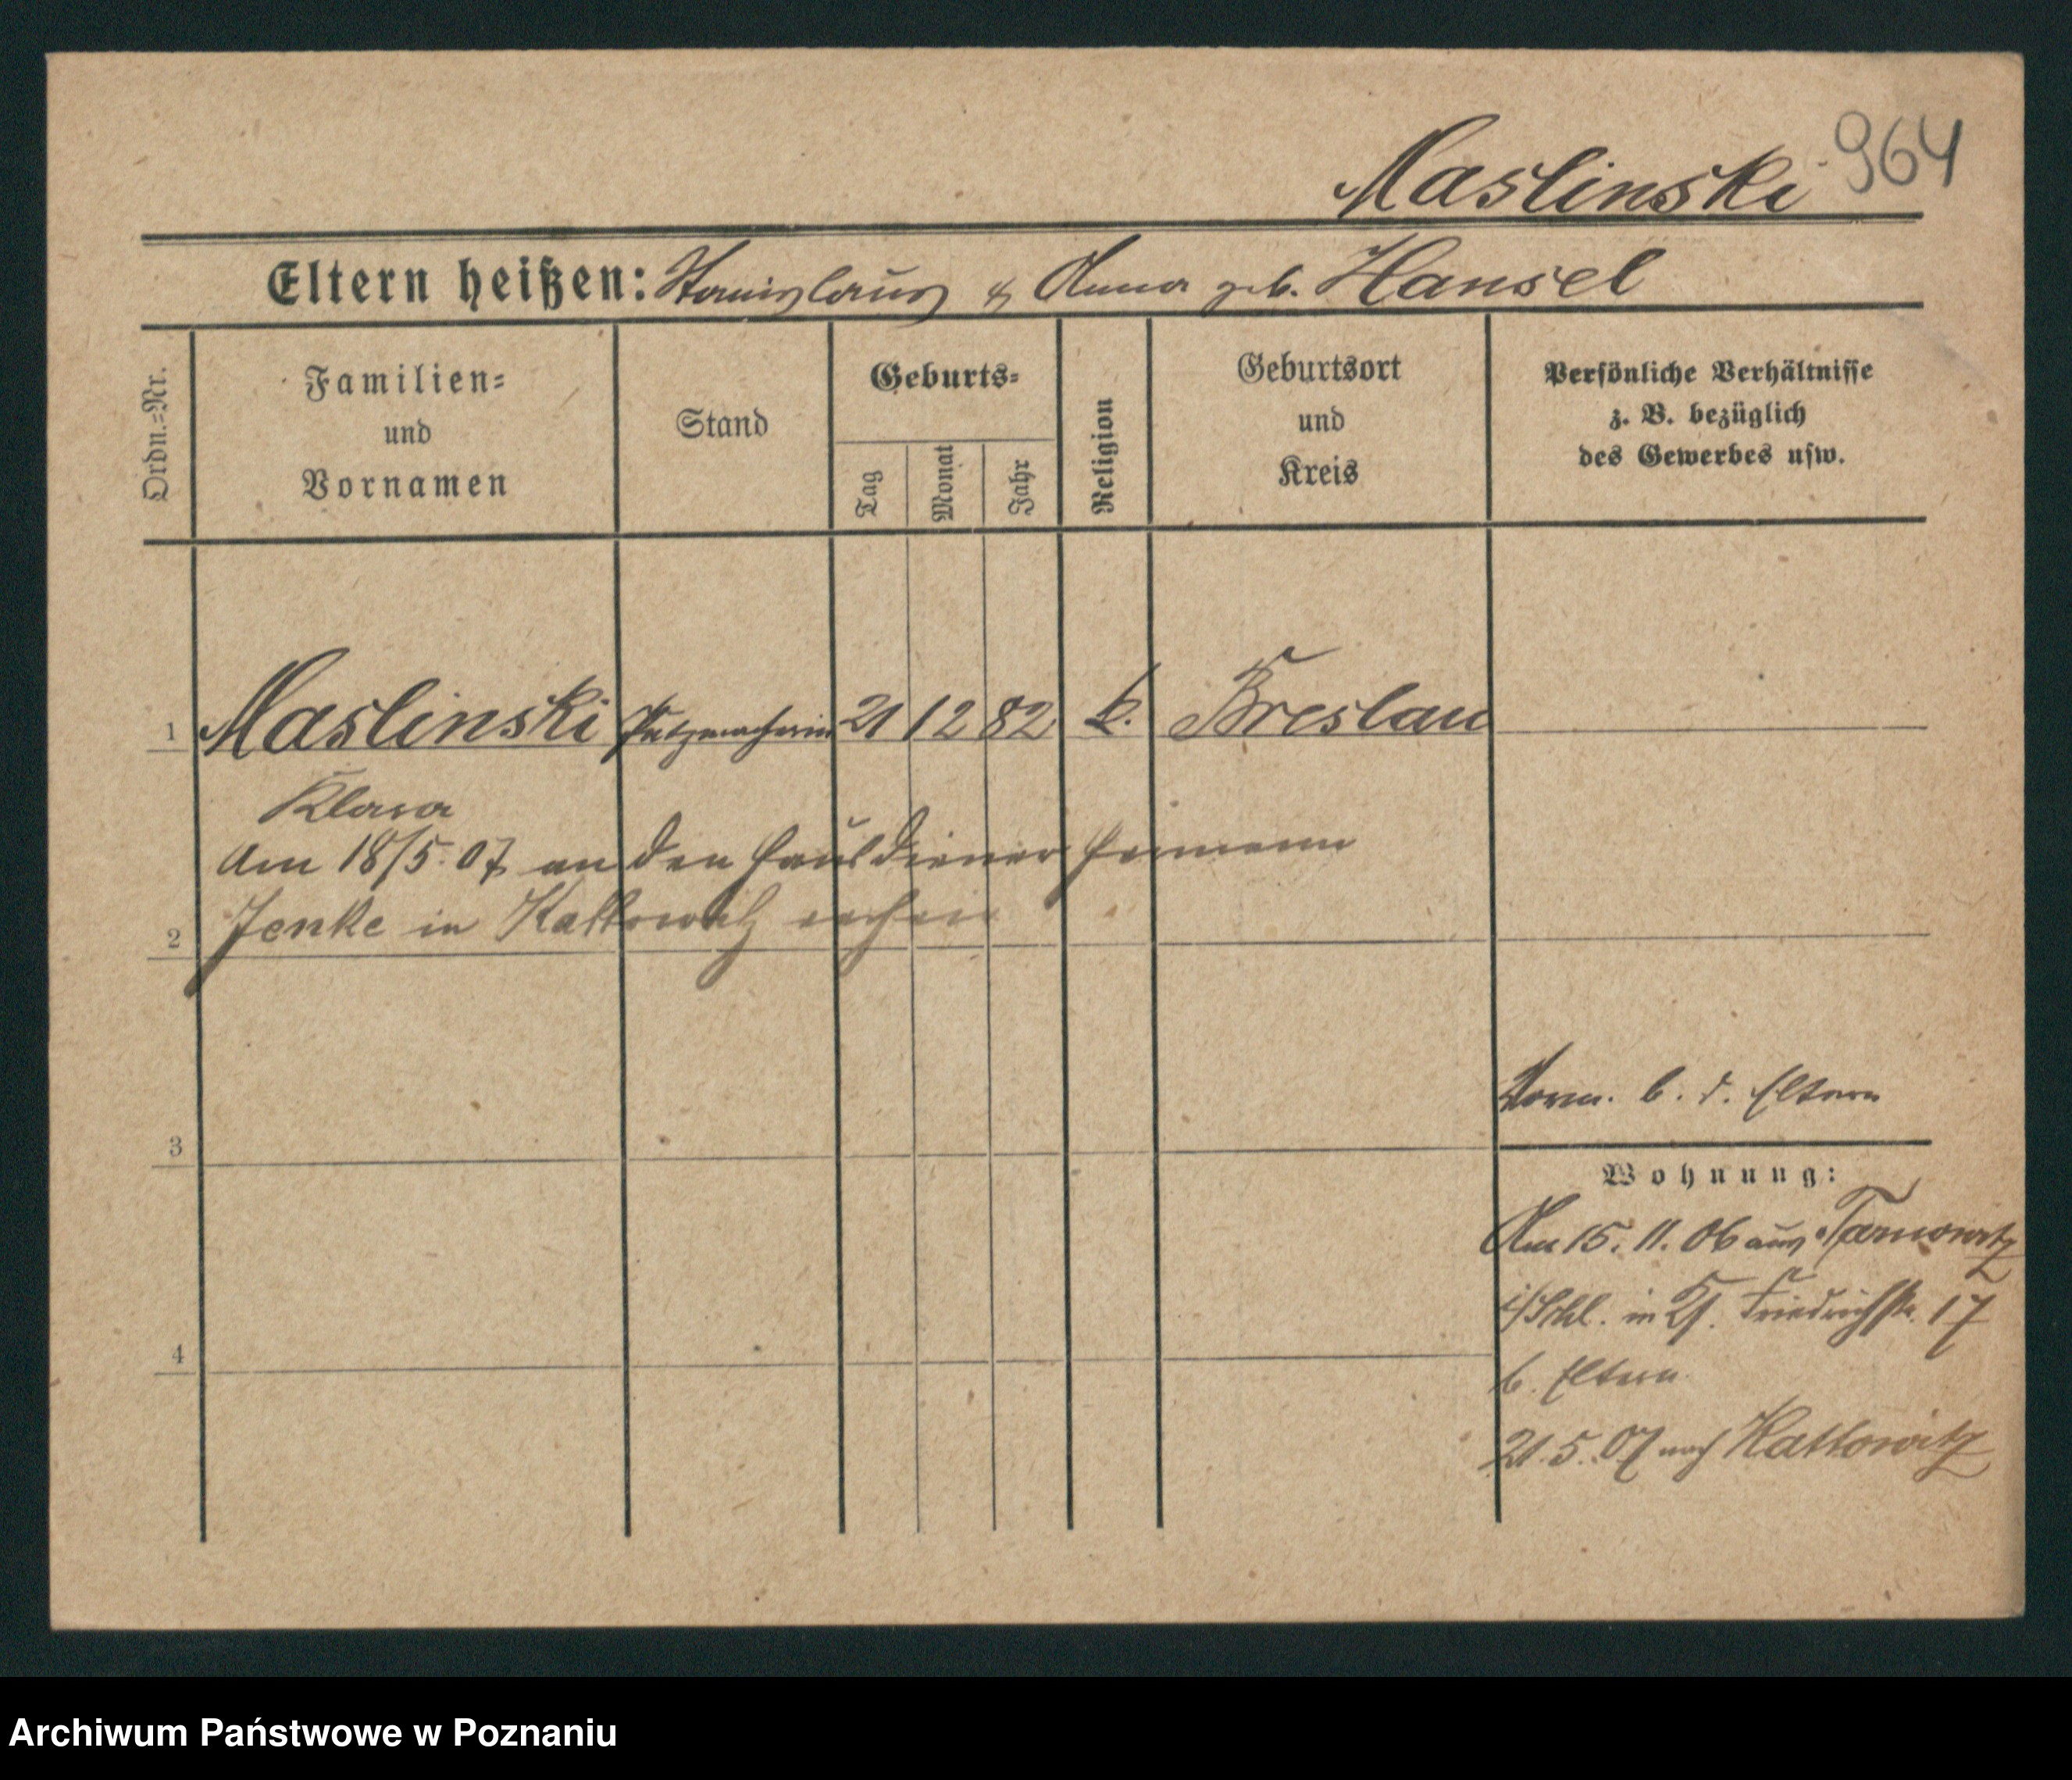 964
Maslinski
Eltern heißen: Stanislaus & Anna geb. Hansel
Ordn.=Nr.
Familien=
und
Vornamen
Stand
Geburts=
Tag
Monat
Jahr
Religion
Geburtsort
und
Kreis
Persönliche Verhältnisse
z. B. bezüglich
des Gewerbes usw.
1 Maslinski Putzmacherin 21 12 82 k. Breslau
Klara
Am 18/5.07 an den Hausdiener Hermann
2 Jenke in Kattowitz verh.
3
4
Vorm. b. d. Eltern
Wohnung:
Am 15.11.06 aus Tarnowitz
i/Schl. in Friedrichstr. 17
b. Eltern
21.5.07 nach Kattowitz
Archiwum Państwowe w Poznaniu